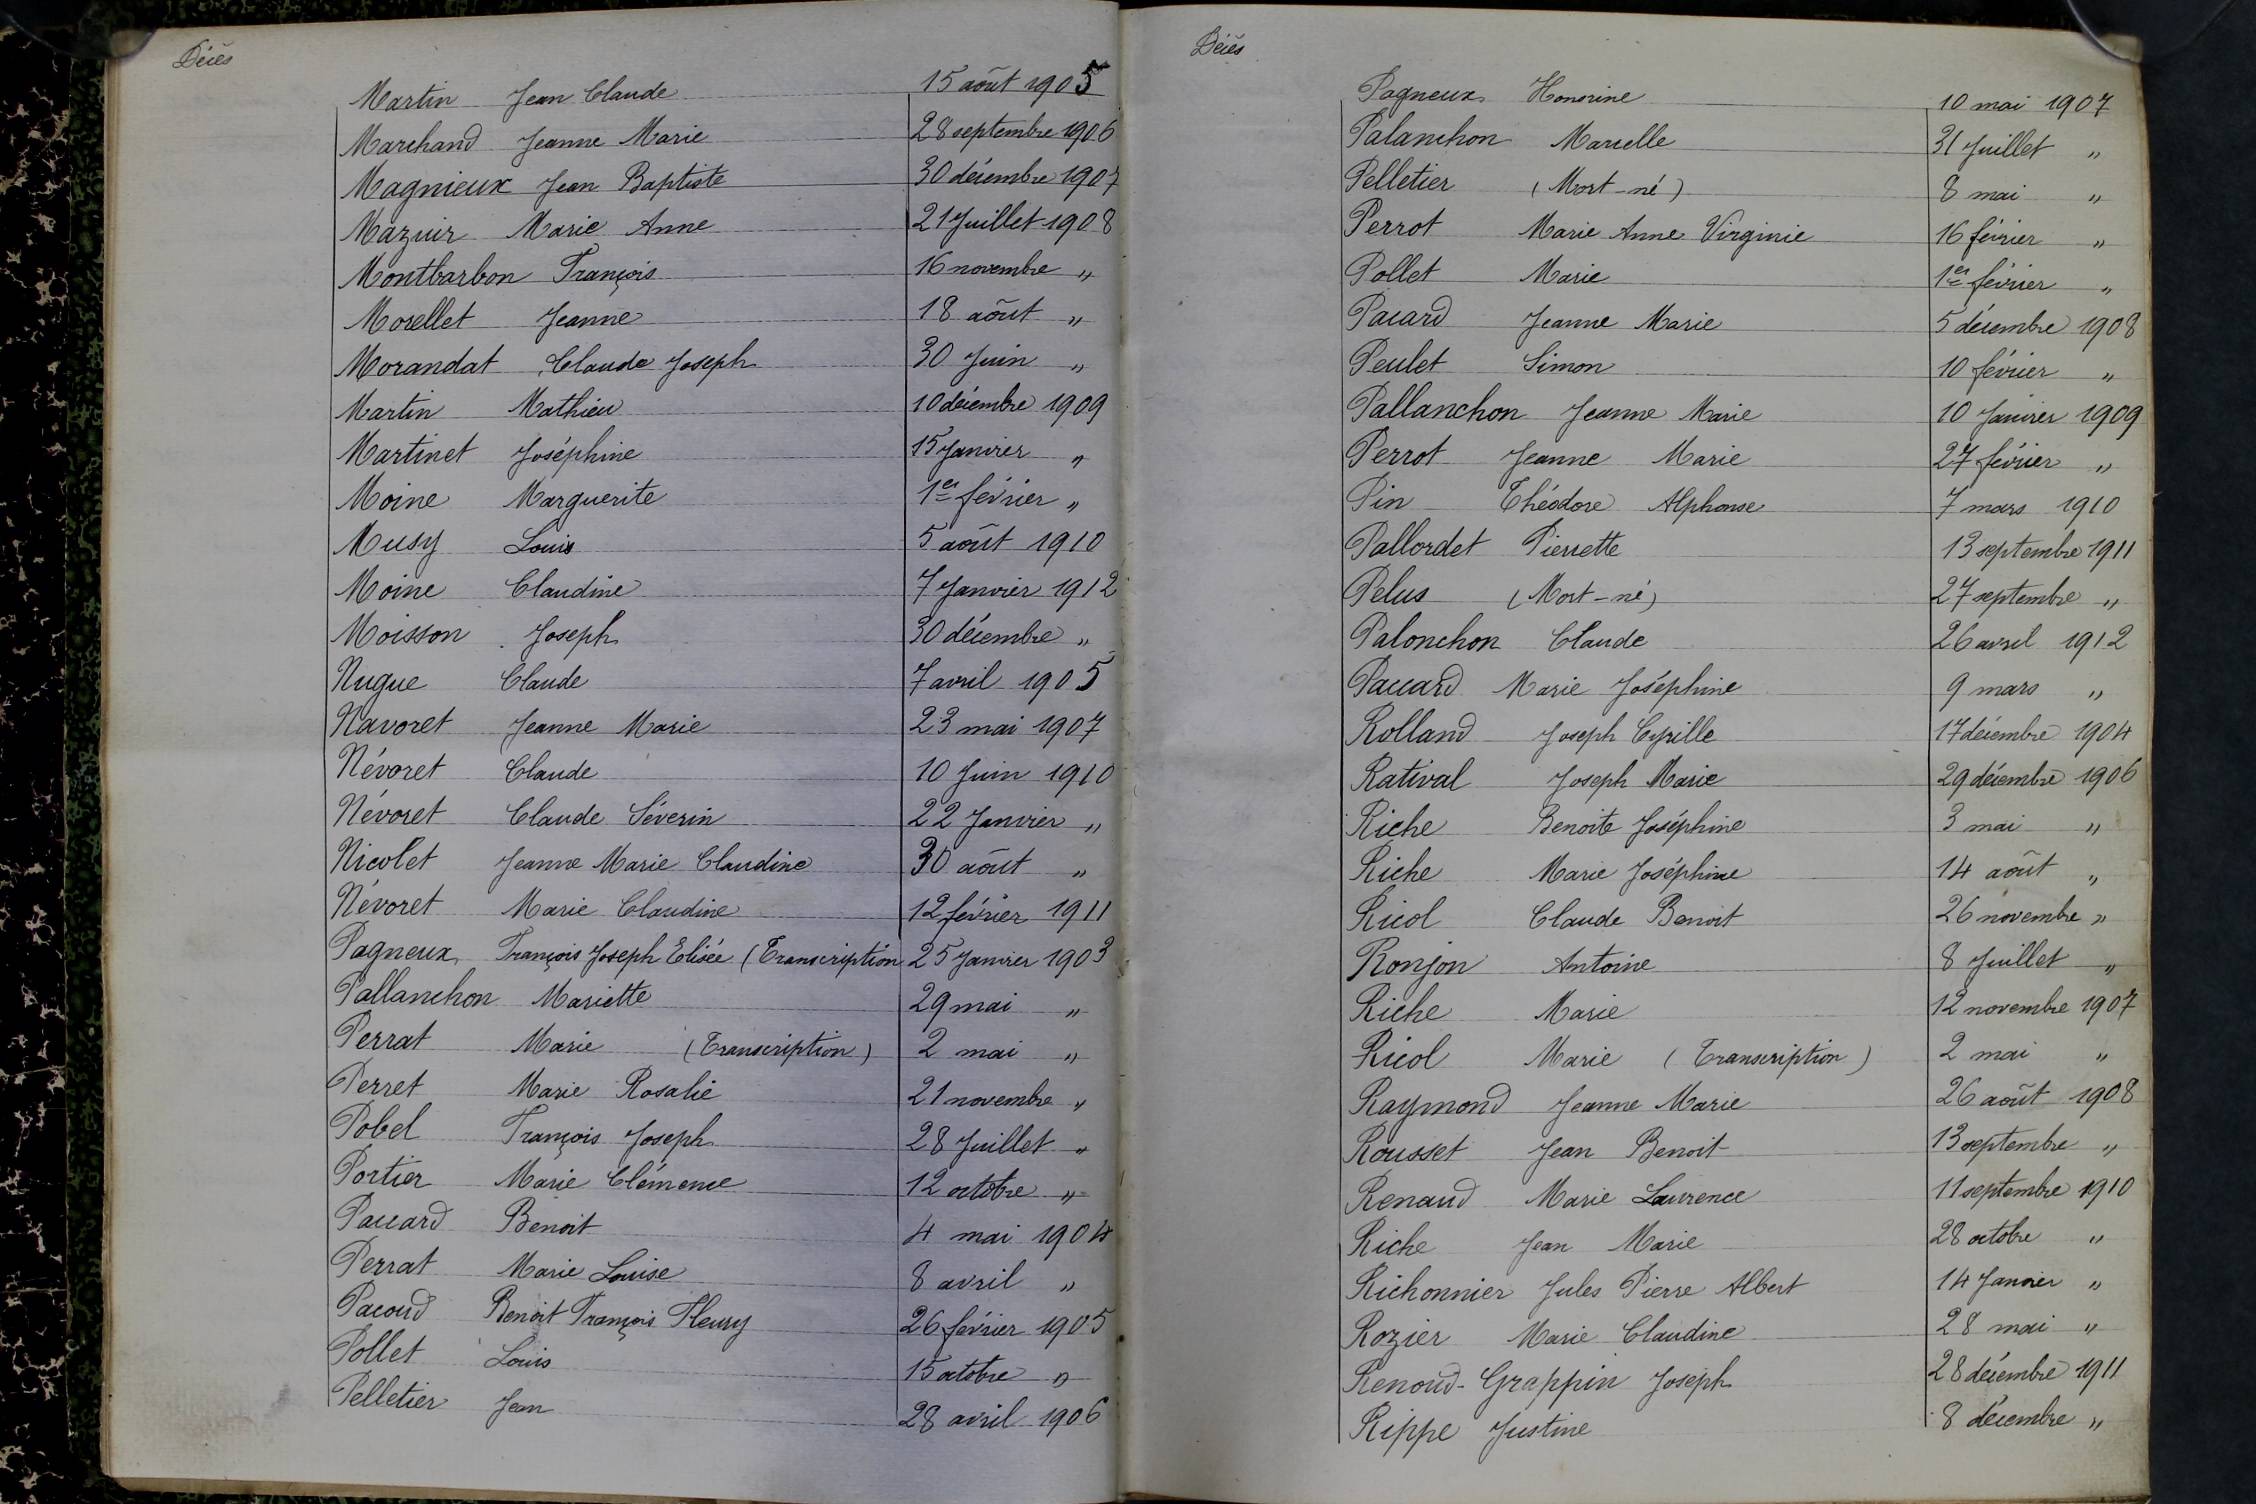 Décès
Martin Jean Claude 15 août 1905
Marchand Jeanne Marie 28 septembre 1906
Magnieux Jean Baptiste 30 décembre 1907
Mazuir Marie Anne 21 Juillet 1908
Montbarbon François 16 novembre "
Morellet Jeanne 18 août "
Morandat Claude Joseph 30 Juin "
Martin Mathieu 10 décembre 1909
Martinet Joséphine 15 Janvier "
Moine Marguerite 1er février "
Musy Louis 5 août 1910
Moine Claudine 7 Janvier 1912
Moisson Joseph 30 décembre "
Nugue Claude 7 avril 1905
Navoret Jeanne Marie 23 mai 1907
Névoret Claude 10 Juin 1910
Névoret Claude Séverin 22 Janvier "
Nicolet Jeanne Marie Claudine 30 août "
Névoret Marie Claudine 12 février 1911
Pagneux François Joseph Elisée (Transcription 25 Janvier 1903
Pallanchon Mariette 29 mai "
Perrat Marie (Transcription) 2 mai "
Perret Marie Rosalie 21 novembre "
Pobel François Joseph 28 Juillet "
Portier Marie Clémence 12 octobre "
Paccard Benoit 4 mai 1904
Perrat Marie Louise 8 avril "
Pacoud Benoit François Fleury 26 février 1905
Pollet Louis 15 octobre "
Pelletier Jean 28 avril 1906
Décès
Pagneux Honorine 10 mai 1907
Palanchon Marcelle 31 Juillet "
Pelletier (Mort-né) 8 mai "
Perrot Marie Anne Virginie 16 février "
Pollet Marie 1er février "
Pacard Jeanne Marie 5 décembre 1908
Peulet Simon 10 février "
Pallanchon Jeanne Marie 10 Janvier 1909
Perrot Jeanne Marie 27 février "
Pin Théodore Alphonse 7 mars 1910
Pallordet Pierrette 13 septembre 1911
Pelus (Mort-né) 27 septembre "
Palonchon Claude 26 avril 1912
Paccard Marie Joséphine 9 mars "
Rolland Joseph Cyrille 17 décembre 1904
Ratival Joseph Marie 29 décembre 1906
Riche Benoite Joséphine 3 mai "
Riche Marie Joséphine 14 août "
Ricol Claude Benoit 26 novembre "
Ronjon Antoine 8 Juillet "
Riche Marie 12 novembre 1907
Ricol Marie (Transcription) 2 mai "
Raymond Jeanne Marie 26 août 1908
Rousset Jean Benoit 13 septembre "
Renaud Marie Laurence 11 septembre 1910
Riche Jean Marie 28 octobre "
Richonnier Jules Pierre Albert 14 Janvier "
Rozier Marie Claudine 28 mai "
Renoud-Grappin Joseph 28 décembre 1911
Rippe Justine 8 décembre "